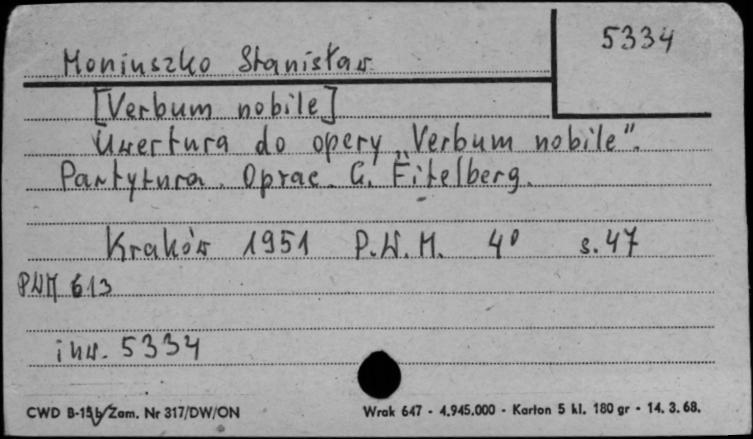 5334
Moniuszko Stanisław
[Verbum nobile]
Uwertura do opery „Verbum nobile".
Partytura. Oprac. G. Fitelberg.
Kraków 1951 P.W.M. 4° s. 47
PWM 613
inw. 5334
CWD B-15b/Zam. Nr 317/DW/ON Wrak 647 - 4.945.000 - Karton 5 kl. 180 gr - 14. 3. 68.